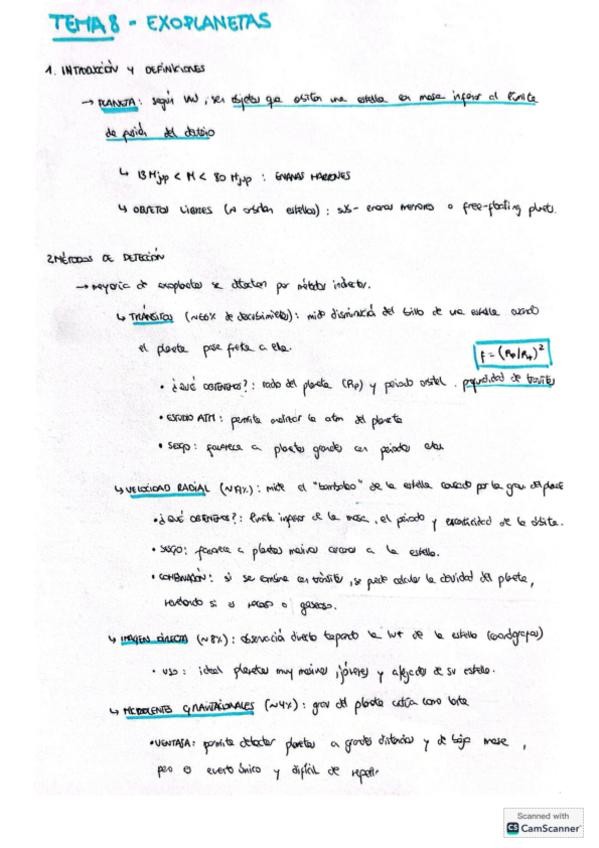 TEMA 8 - EXOPLANETAS
1. INTRODUCCIÓN Y DEFINICIONES
→ PLANETA: según, ser objetos que orbitan una estrella con masa inferior al límite
de fusión del deuterio
↳ 13 Mjup < M < 80 Mjup : ENANAS MARRONES
↳ OBJETOS LIBRES (no orbitan estrellas): sub-enanas marrones o free-floating planets.
2. MÉTODOS DE DETECCIÓN
→ mayoría de exoplanetas se detectan por métodos indirectos.
↳ TRÁNSITOS (de descubrimientos): mide disminución del brillo de una estrella cuando
el planeta pasa frente a ella.
F = (Rp/R*)²
• ¿QUÉ OBTENEMOS?: radio del planeta (Rp) y periodo orbital. profundidad de tránsito
• ESTUDIO ATM: permite analizar la atm del planeta
• SESGO: favorece a planetas grandes con periodos
↳ VELOCIDAD RADIAL: mide el "bamboleo" de la estrella causado por la grav del planeta
• ¿QUÉ OBTENEMOS?: límite inferior de la masa, el periodo y excentricidad de la órbita.
• SESGO: favorece a planetas masivos cercanos a la estrella.
• COMBINACIÓN: si se combina con tránsito, se puede calcular la densidad del planeta,
si es rocoso o gaseoso.
↳ IMAGEN DIRECTA (~8%): observación directa tapando la luz de la estrella (coronógrafos)
• USO: ideal planetas muy masivos, jóvenes y alejados de su estrella.
↳ MICROLENTES GRAVITACIONALES (~4%): grav del planeta actúa como lente
• VENTAJA: permite detectar planetas a grandes distancias y de baja masa,
pero es evento único y difícil de repetir
Scanned with
CS CamScanner